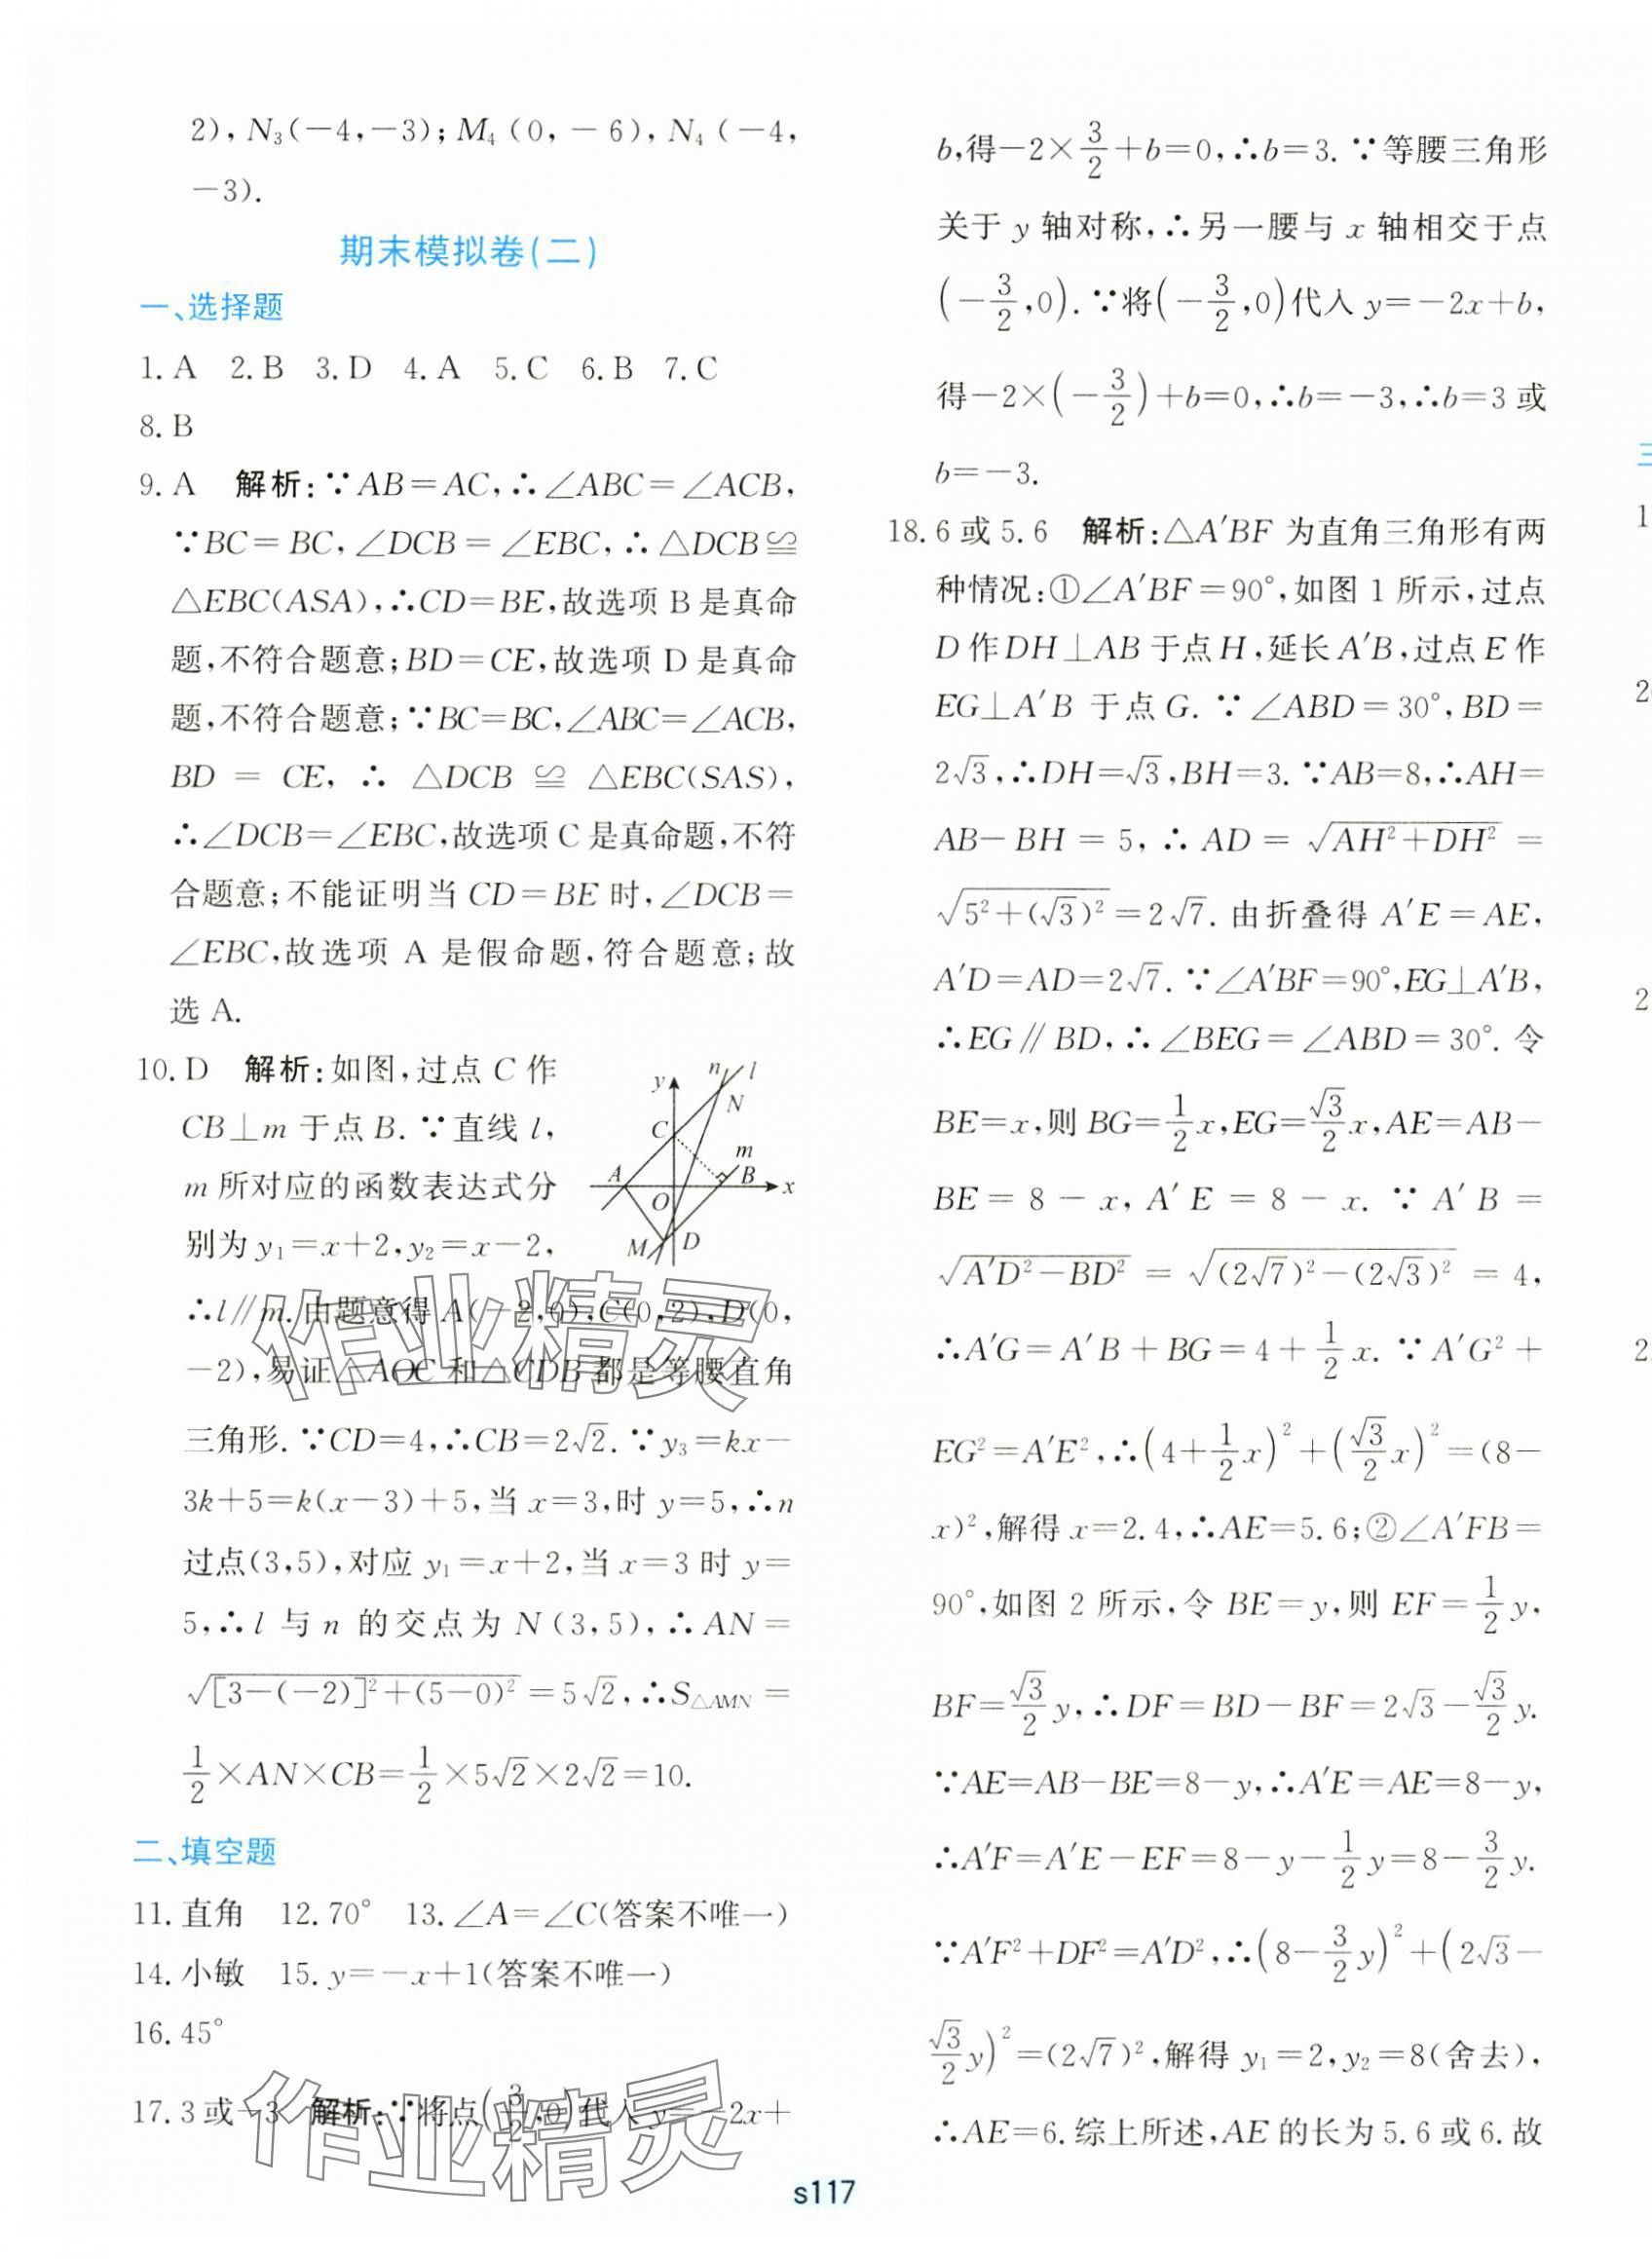 2), N₃(－4,－3); M₄(0,－6), N₄(－4,
－3).
期末模拟卷(二)
一、选择题
1. A 2. B 3. D 4. A 5. C 6. B 7. C
8. B
9. A 解析:∵AB＝AC,∴∠ABC＝∠ACB,
∵BC＝BC,∠DCB＝∠EBC,∴△DCB≌
△EBC(ASA),∴CD＝BE,故选项 B 是真命
题,不符合题意;BD＝CE,故选项 D 是真命
题,不符合题意;∵BC＝BC,∠ABC＝∠ACB,
BD ＝ CE, ∴ △DCB ≌ △EBC(SAS),
∴∠DCB＝∠EBC,故选项 C 是真命题,不符
合题意;不能证明当 CD＝BE 时,∠DCB＝
∠EBC,故选项 A 是假命题,符合题意;故
选 A.
10. D 解析:如图,过点 C 作
CB⊥m 于点 B. ∵直线 l,
m 所对应的函数表达式分
别为 y₁＝x＋2,y₂＝x－2,
y n l N C m A B x O M D
∴l∥m.由题意得 A(－2,0),C(0,2),D(0,
－2),易证△AOC 和△CDB 都是等腰直角
三角形. ∵CD＝4,∴CB＝2√2. ∵y₃＝kx－
3k＋5＝k(x－3)＋5,当 x＝3,时 y＝5,∴n
过点(3,5),对应 y₁＝x＋2,当 x＝3 时 y＝
5,∴l 与 n 的交点为 N(3,5),∴AN＝
√([3－(－2)]²＋(5－0)²)＝5√2,∴S△AMN＝
1/2×AN×CB＝1/2×5√2×2√2＝10.
二、填空题
11. 直角 12. 70° 13. ∠A＝∠C(答案不唯一)
14. 小敏 15. y＝－x＋1(答案不唯一)
16. 45°
17. 3 或－3 解析:∵将点(3/2,0)代入 y＝－2x＋
b,得－2×3/2＋b＝0,∴b＝3. ∵等腰三角形
关于 y 轴对称,∴另一腰与 x 轴相交于点
(－3/2,0). ∵将(－3/2,0)代入 y＝－2x＋b,
得－2×(－3/2)＋b＝0,∴b＝－3,∴b＝3 或
b＝－3.
18. 6 或 5.6 解析:△A′BF 为直角三角形有两
种情况:①∠A′BF＝90°,如图 1 所示,过点
D 作 DH⊥AB 于点 H,延长 A′B,过点 E 作
EG⊥A′B 于点 G. ∵∠ABD＝30°,BD＝
2√3,∴DH＝√3,BH＝3. ∵AB＝8,∴AH＝
AB－BH＝5,∴AD＝√(AH²＋DH²)＝
√(5²＋(√3)²)＝2√7. 由折叠得 A′E＝AE,
A′D＝AD＝2√7. ∵∠A′BF＝90°,EG⊥A′B,
∴EG∥BD,∴∠BEG＝∠ABD＝30°. 令
BE＝x,则 BG＝1/2x,EG＝√3/2x,AE＝AB－
BE＝8－x,A′E＝8－x. ∵A′B＝
√(A′D²－BD²)＝√((2√7)²－(2√3)²)＝4,
∴A′G＝A′B＋BG＝4＋1/2x. ∵A′G²＋
EG²＝A′E²,∴(4＋1/2x)²＋(√3/2x)²＝(8－
x)²,解得 x＝2.4,∴AE＝5.6;②∠A′FB＝
90°,如图 2 所示,令 BE＝y,则 EF＝1/2y,
BF＝√3/2y,∴DF＝BD－BF＝2√3－√3/2y.
∵AE＝AB－BE＝8－y,∴A′E＝AE＝8－y,
∴A′F＝A′E－EF＝8－y－1/2y＝8－3/2y.
∵A′F²＋DF²＝A′D²,∴(8－3/2y)²＋(2√3－
√3/2y)²＝(2√7)²,解得 y₁＝2,y₂＝8(舍去),
∴AE＝6.综上所述,AE 的长为 5.6 或 6.故
三
1
2
2
2
作业精灵
作业精灵
s117